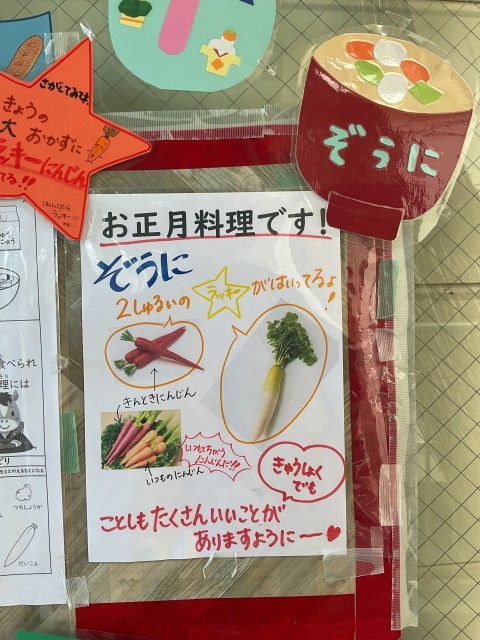 さがしてみてね
きょうの
大おかずに
ラッキーにんじん
てる!!
ぞうに
お正月料理です!
ぞうに
2しゅるいの
ラッキー
がはいってるよ!
きんときにんじん
いつものにんじん
いつもとちがう
にんじんだ!!
きゅうしょく
でも
ことしもたくさんいいことが
ありますように〜♥
食べられ
理には
つちしょうが
だいこん